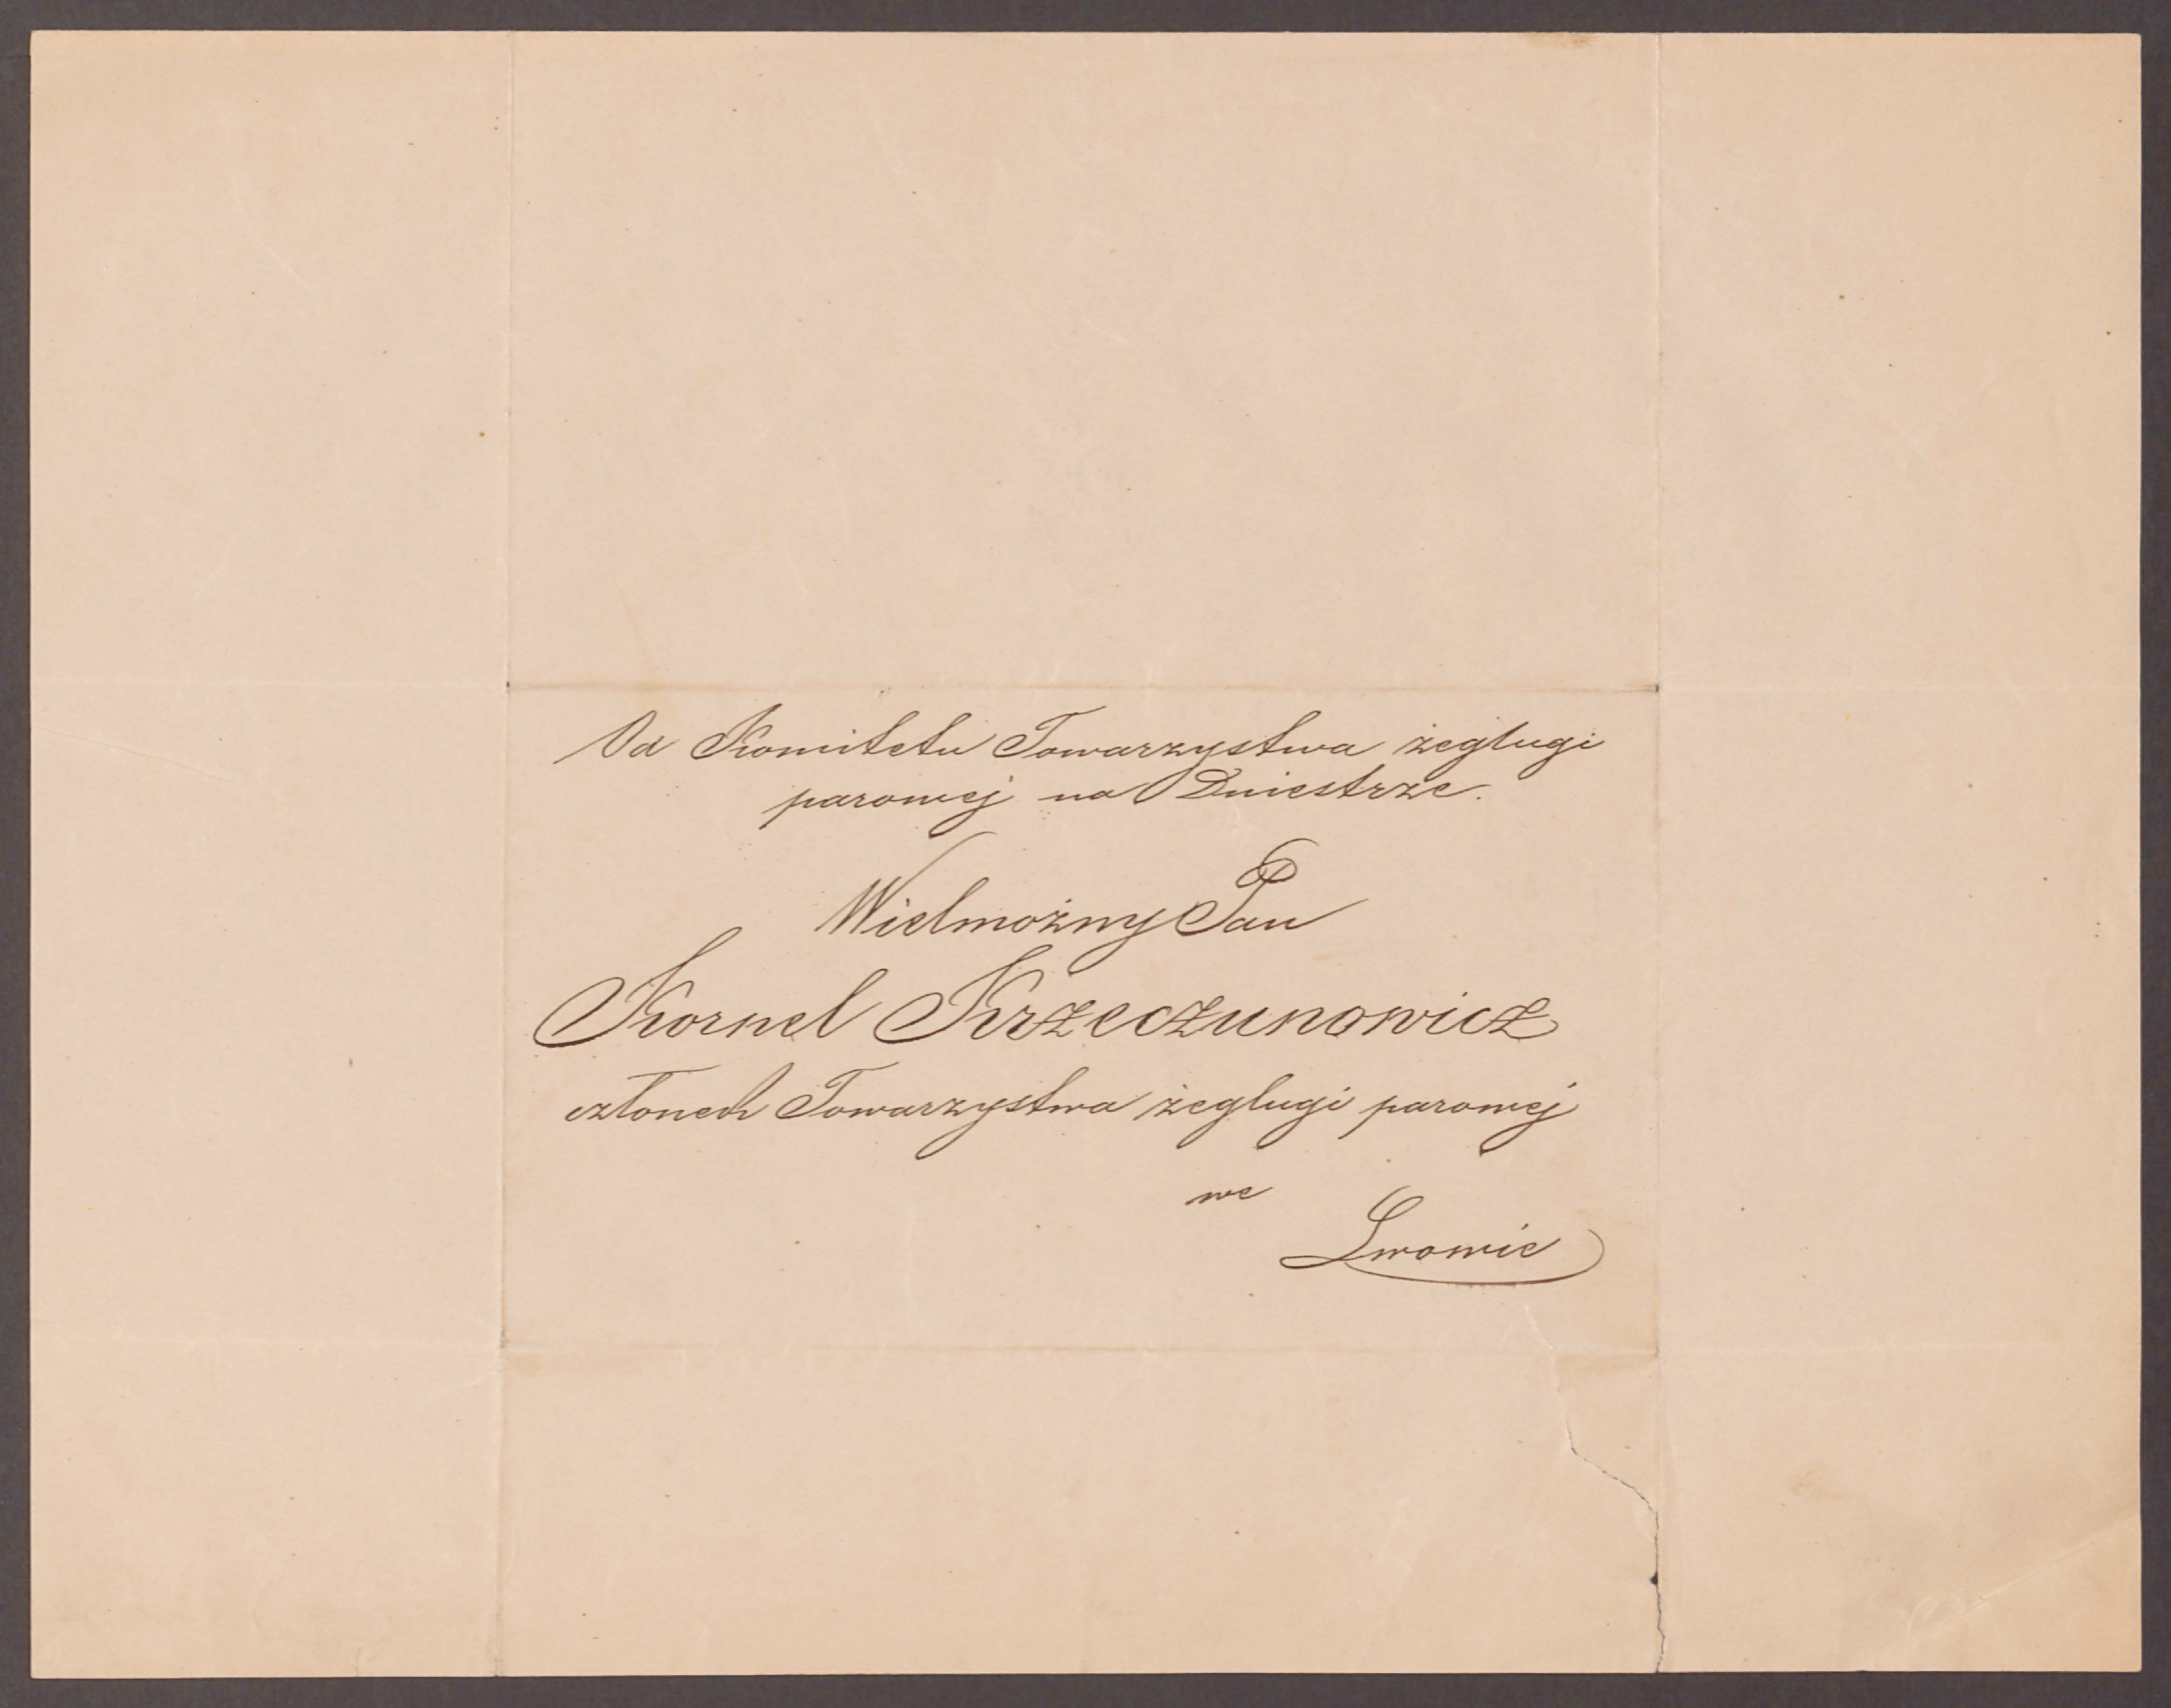 Od Komitetu Towarzystwa żeglugi
parowej na Dniestrze.
Wielmożny Pan
Kornel Krzeczunowicz
członek Towarzystwa żeglugi parowej
we
Lwowie